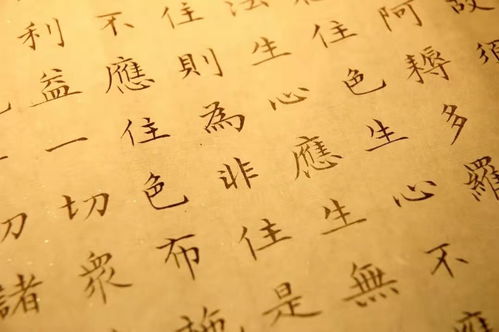 故須
阿耨多羅
住色生心不
法生心應生無
住則為非住是
不應住色布施
利益一切眾
一切諸